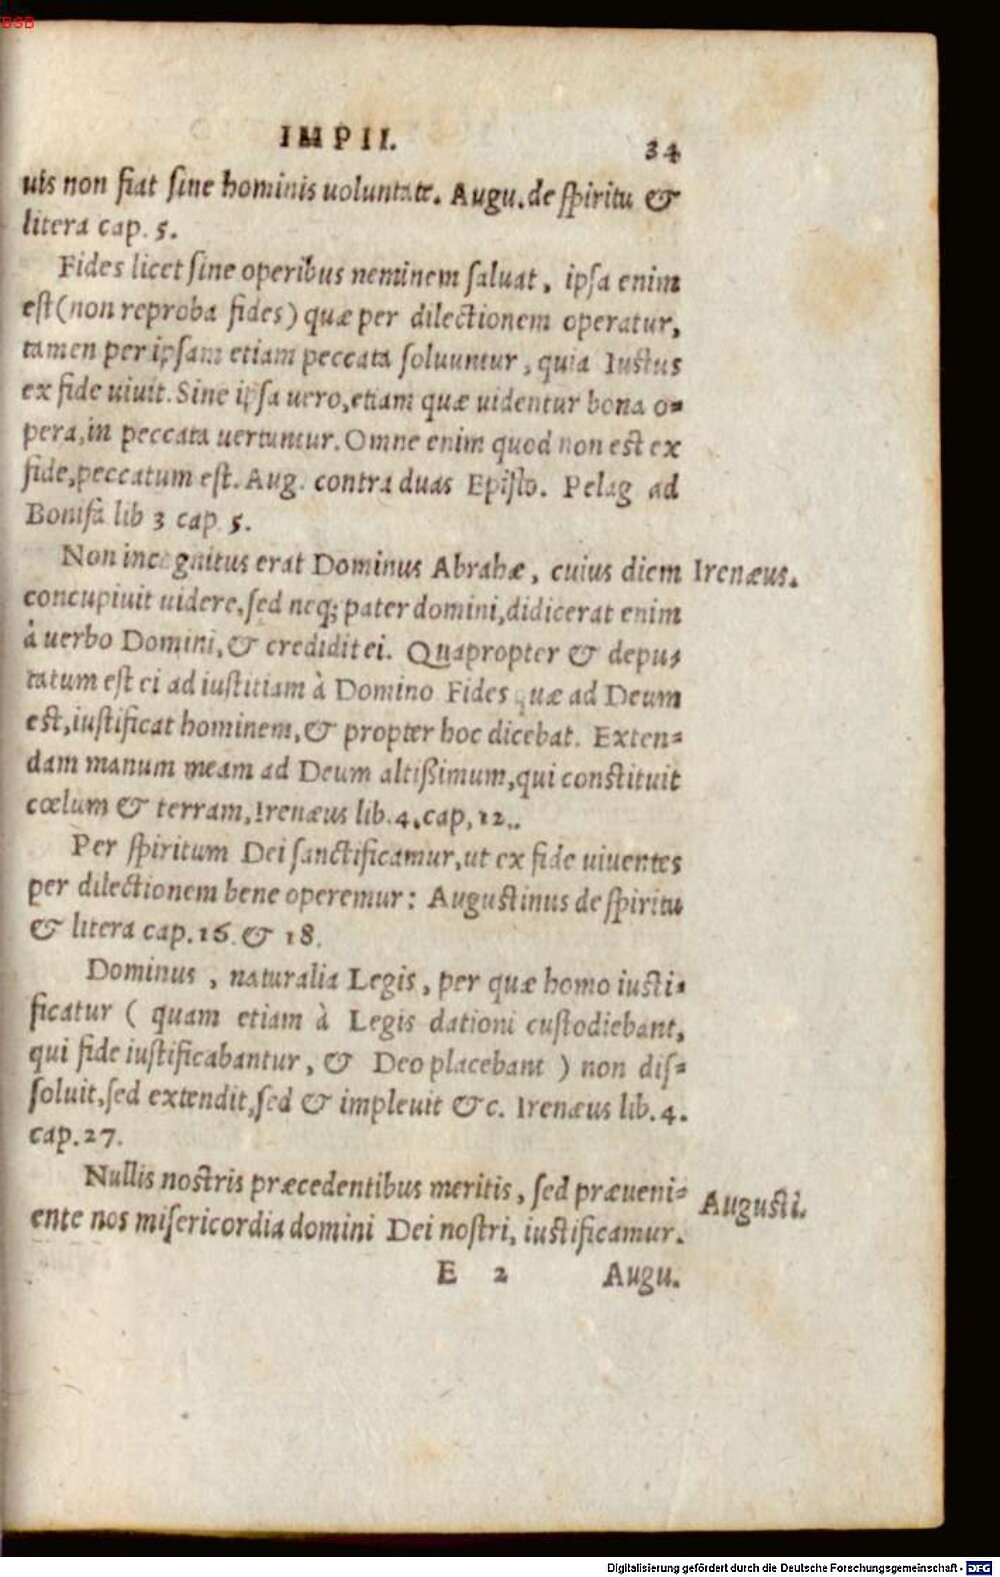 BSB
IMPII. 34
uis non fiat sine hominis uoluntate. Augu. de spiritu &
litera cap. 5.
Fides licet sine operibus neminem saluat, ipsa enim
est (non reproba fides) quæ per dilectionem operatur,
tamen per ipsam etiam peccata soluuntur, quia Iustus
ex fide uiuit. Sine ipsa uero, etiam quæ uidentur bona o=
pera, in peccata uertuntur. Omne enim quod non est ex
fide, peccatum est. Aug. contra duas Episto. Pelag ad
Bonifa lib 3 cap 5.
Non incognitus erat Dominus Abrahæ, cuius diem Irenæus.
concupiuit uidere, sed neq; pater domini, didicerat enim
à uerbo Domini, & credidit ei. Quapropter & depu=
tatum est ei ad iustitiam à Domino Fides quæ ad Deum
est, iustificat hominem, & propter hoc dicebat. Exten=
dam manum meam ad Deum altißimum, qui constituit
cœlum & terram, Irenæus lib. 4. cap, 12..
Per spiritum Dei sanctificamur, ut ex fide uiuentes
per dilectionem bene operemur: Augustinus de spiritu
& litera cap. 16. & 18.
Dominus, naturalia Legis, per quæ homo iusti=
ficatur ( quam etiam à Legis dationi custodiebant,
qui fide iustificabantur, & Deo placebant ) non dis=
soluit, sed extendit, sed & impleuit &c. Irenæus lib. 4.
cap. 27.
Nullis nostris præcedentibus meritis, sed præueni= Augusti.
ente nos misericordia domini Dei nostri, iustificamur.
E 2 Augu.
Digitalisierung gefördert durch die Deutsche Forschungsgemeinschaft - DFG